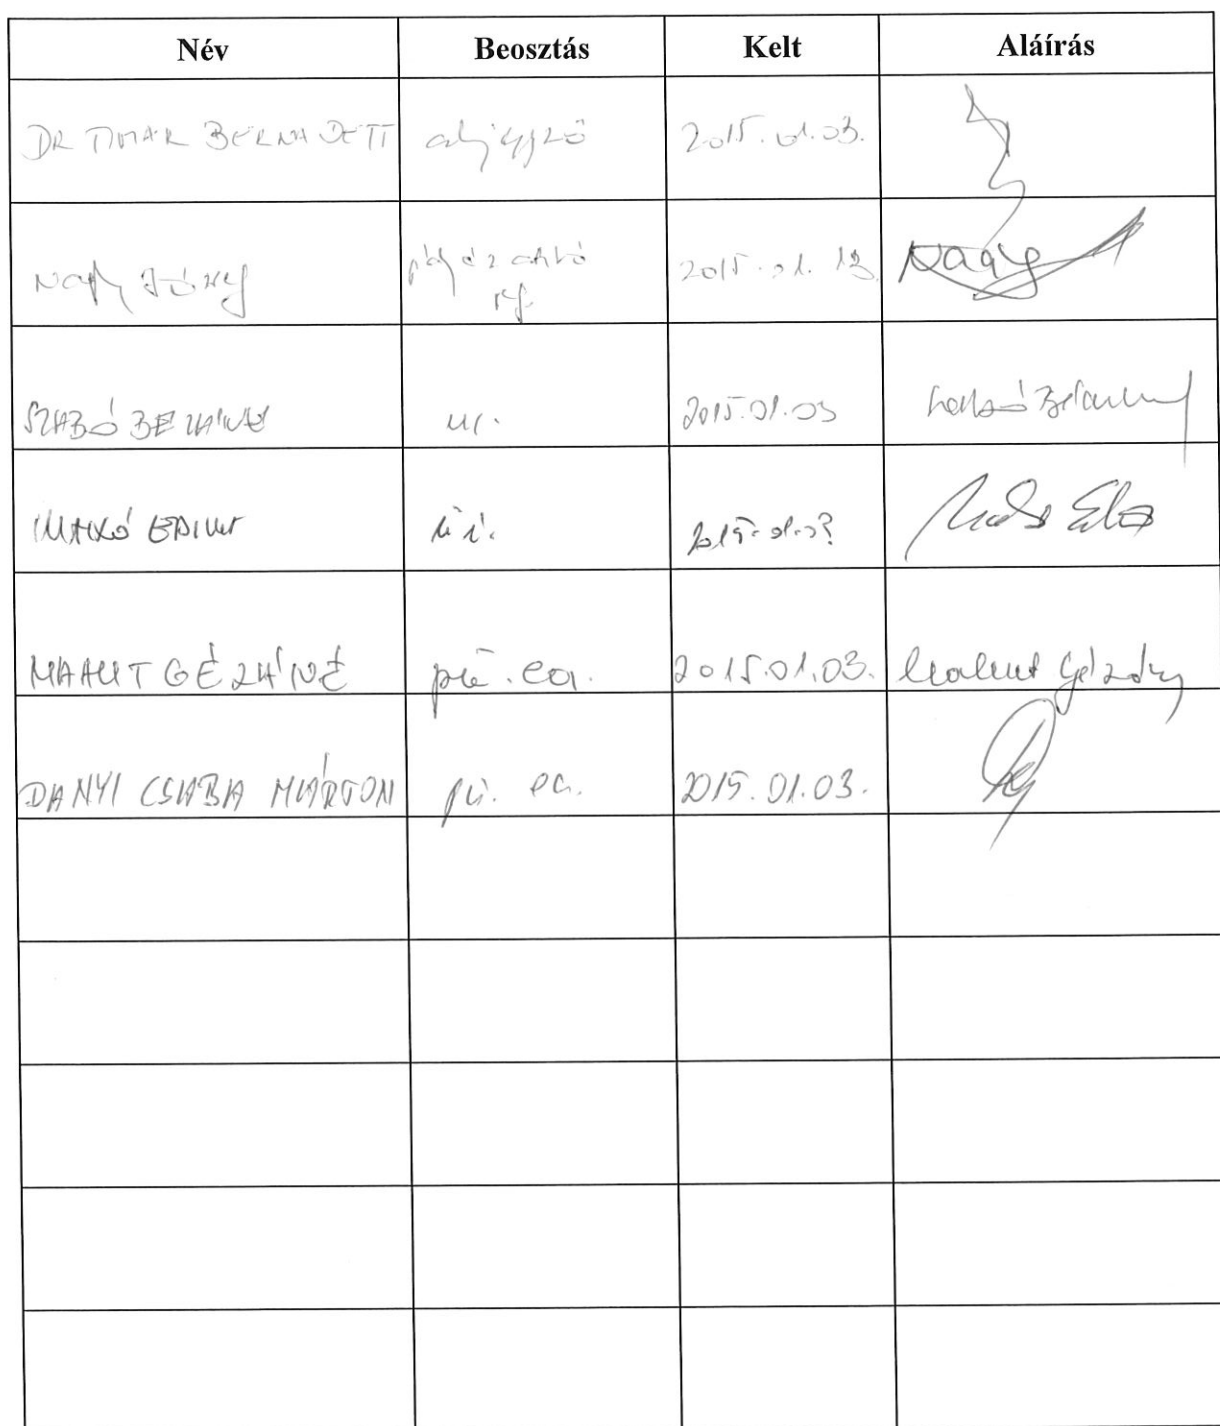 Név Beosztás Kelt Aláírás
DR TIMÁR BERNADETT aljegyző 2015.01.03.
Nagy József 2015.01.13 Nagy
SZABÓ BÉLÁNÉ 2015.01.03 Szabó Béláné
MAKÓ EDINA 2015.01.03
MAHUT GÉZÁNÉ pü. ea. 2015.01.03. Mahut Gézáné
DANYI CSABA MÁRTON pü. ea. 2015.01.03.